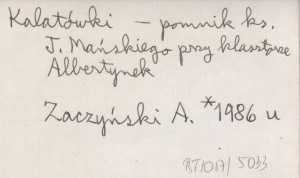 Kalatówki – pomnik ks.
J. Mańskiego przy klasztorze
Albertynek
Zaczyński A. *1986 u
BT/OA/5033